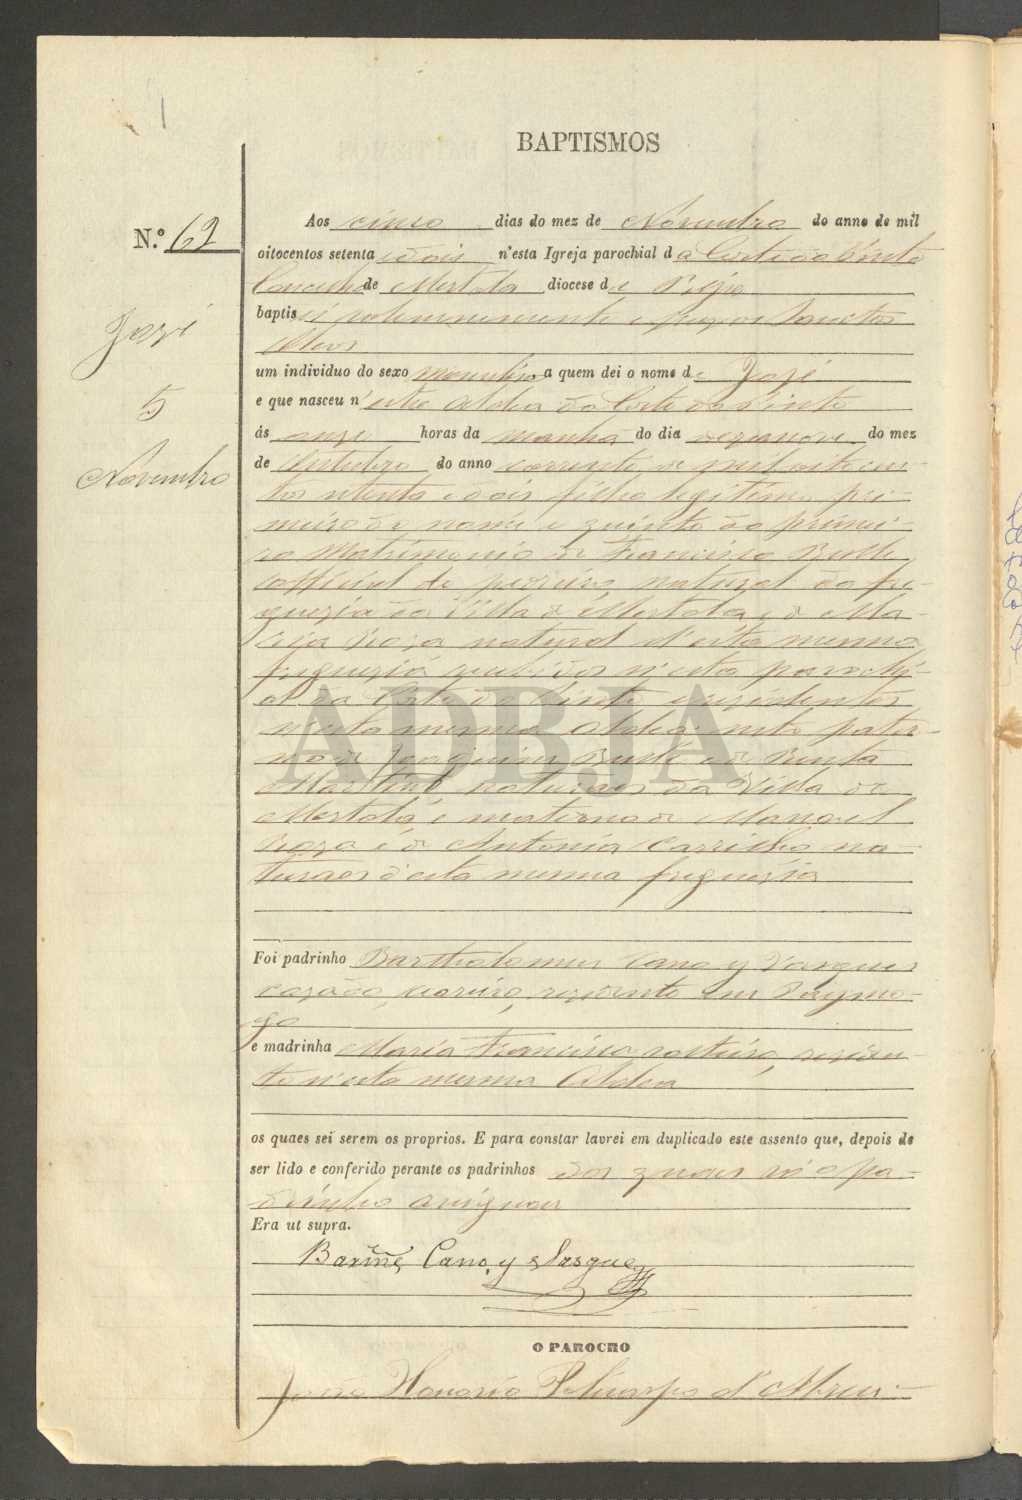 BAPTISMOS
N.º 62
José
5
Novembro
Aos cinco dias do mez de Novembro do anno de mil
oitocentos setenta e dois n'esta Igreja parochial da Corte do Pinto
Concelho de Mertola diocese de Beja
baptisei solemnemente e puz os Sanctos
Oleos
um individuo do sexo masculino a quem dei o nome de José
e que nasceu n'esta Aldea da Corte do Pinto
ás onze horas da manhã do dia dezanove do mez
de Outubro do anno corrente de mil oitocen-
tos setenta e dois filho legitimo pri-
meiro de nome e quinto do primei-
ro Matrimonio de Francisco
official de pedreiro natural da fre-
guezia da Villa de Mertola e de Ma-
ria Roza natural d'esta mesma
freguezia recebidos n'esta parochi-
al da Corte do Pinto e rezidentes
n'esta mesma Aldea neto pater-
no de Joaquim e de Benta
Martins naturaes da Villa de
Mertola e materno de Manoel
Roza e de Antonia Carrilho na-
turaes d'esta mesma freguezia
Foi padrinho Bartholomeu Cano y Vasques
cazado, rezidente em Paymo-
go
e madrinha Maria Francisca, solteira, reziden-
te n'esta mesma Aldea
os quaes sei serem os proprios. E para constar lavrei em duplicado este assento que, depois de
ser lido e conferido perante os padrinhos dos quaes só o pa-
drinho assignou
Era ut supra.
Barme Cano y Vasquez
ADBJA
O PAROCHO
João Honorio Policarpo d'Abreu